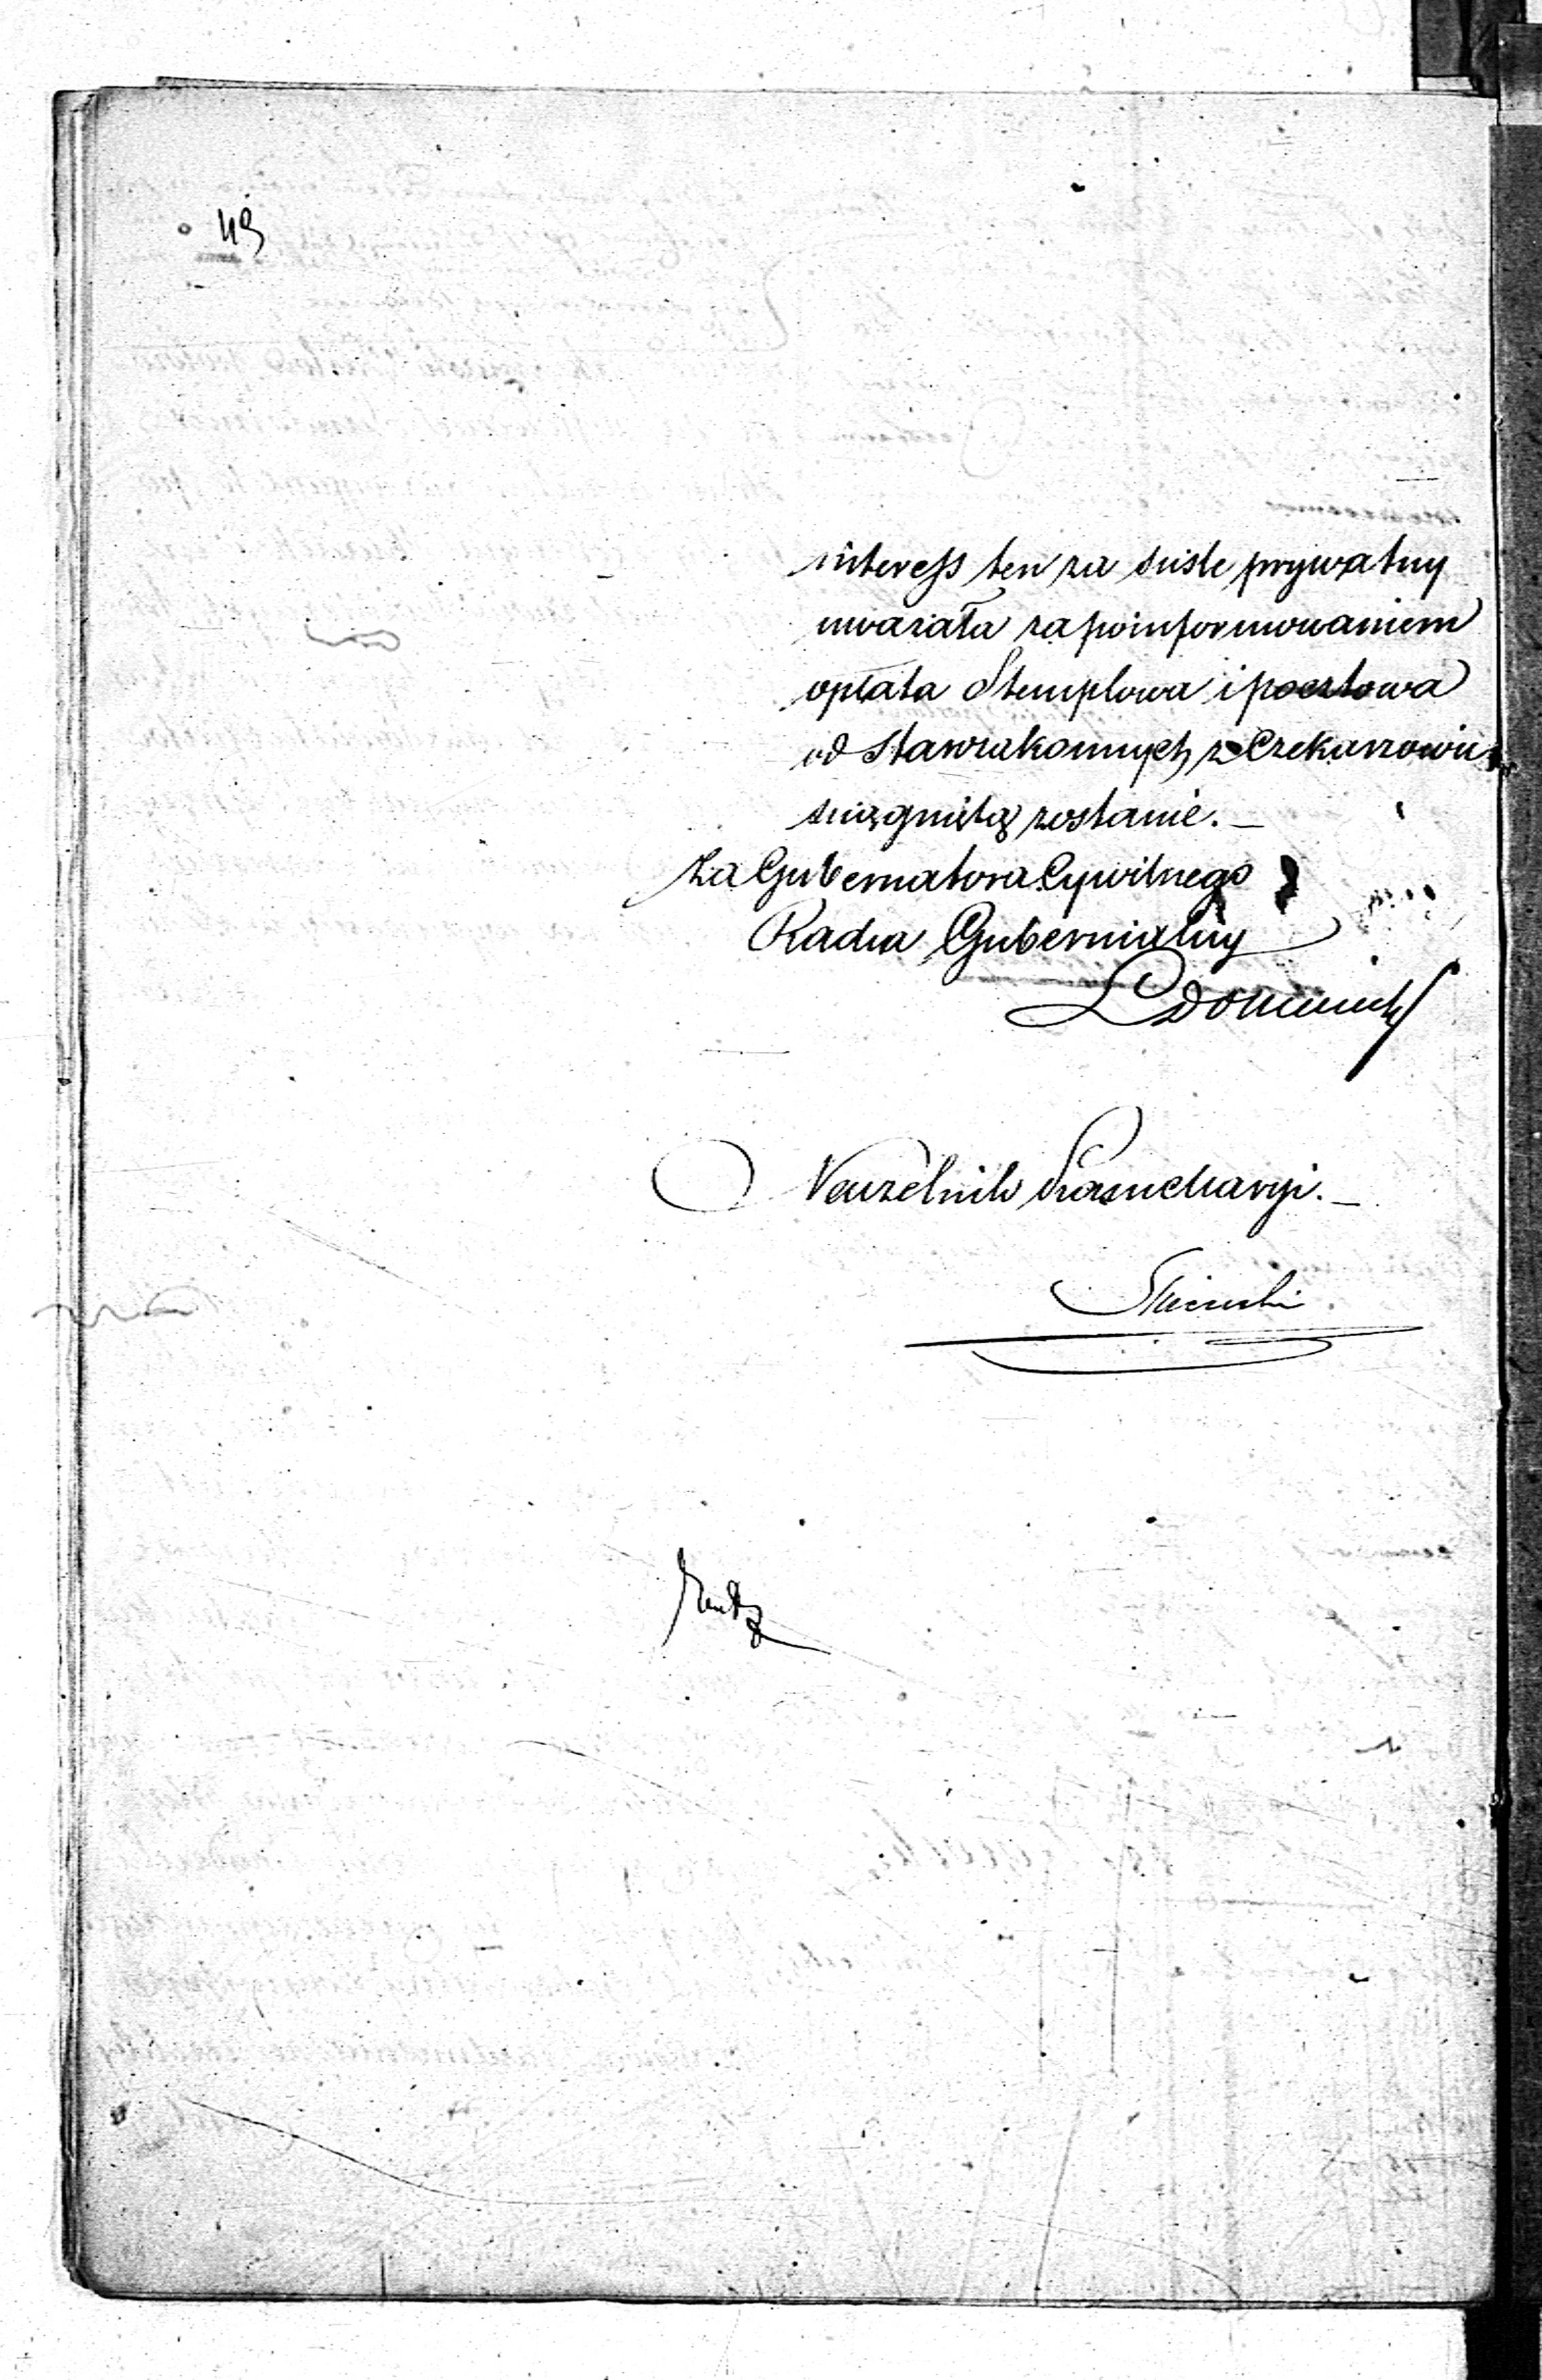 49
interess ten za ściśle prywatny
uważała za poinformowaniem
opłata Stemplowa i pocztowa
od Starozakonnych z Czekarzowic
ściągniętą zostanie. —
Za Gubernatora Cywilnego
Radca Gubernialny
Naczelnik Kancellaryi. —